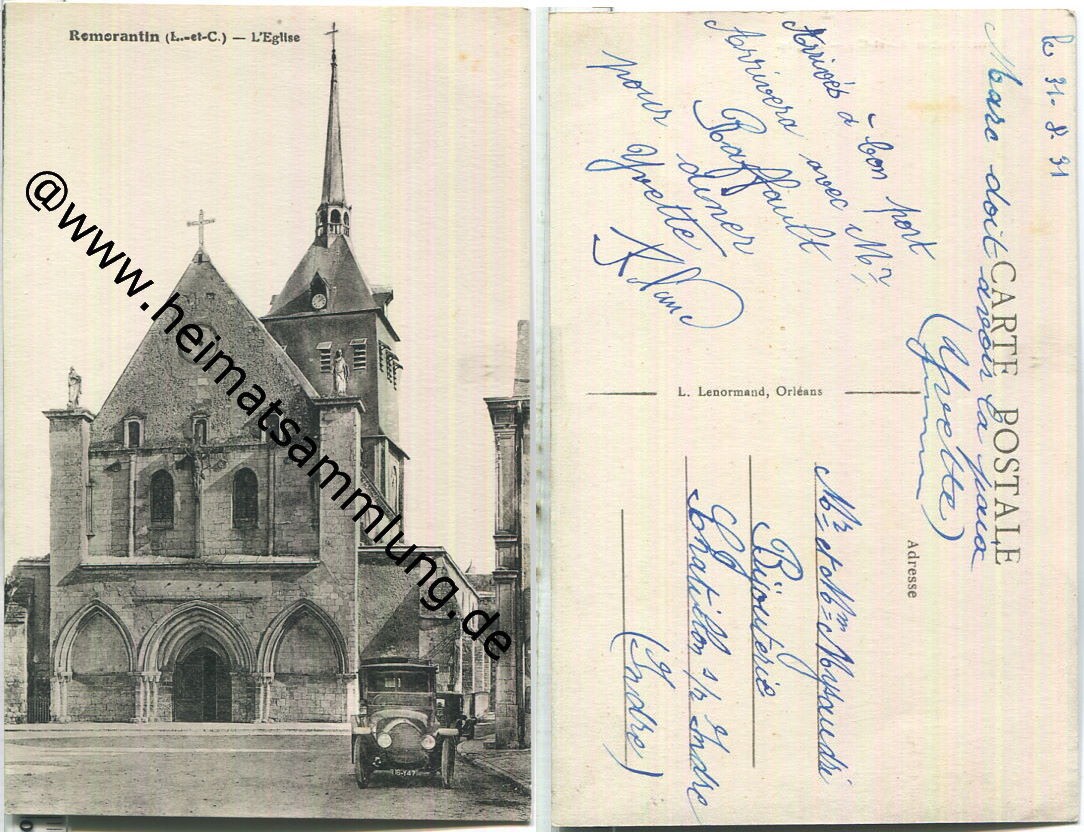 Romorantin (L.-et-C.) — L'Eglise
@www.heimatsammlung.de
116-Y47
le 31. 8. 31
Marc doit avoir la paix
(Yvette)
CARTE POSTALE
Adresse
Arrivés à bon port
Arrivera avec Mr
Raffault
pour diner
Yvette
L. Lenormand, Orléans
Mr et Mme
Bijouterie
Chatillon s/ Indre
(Indre)